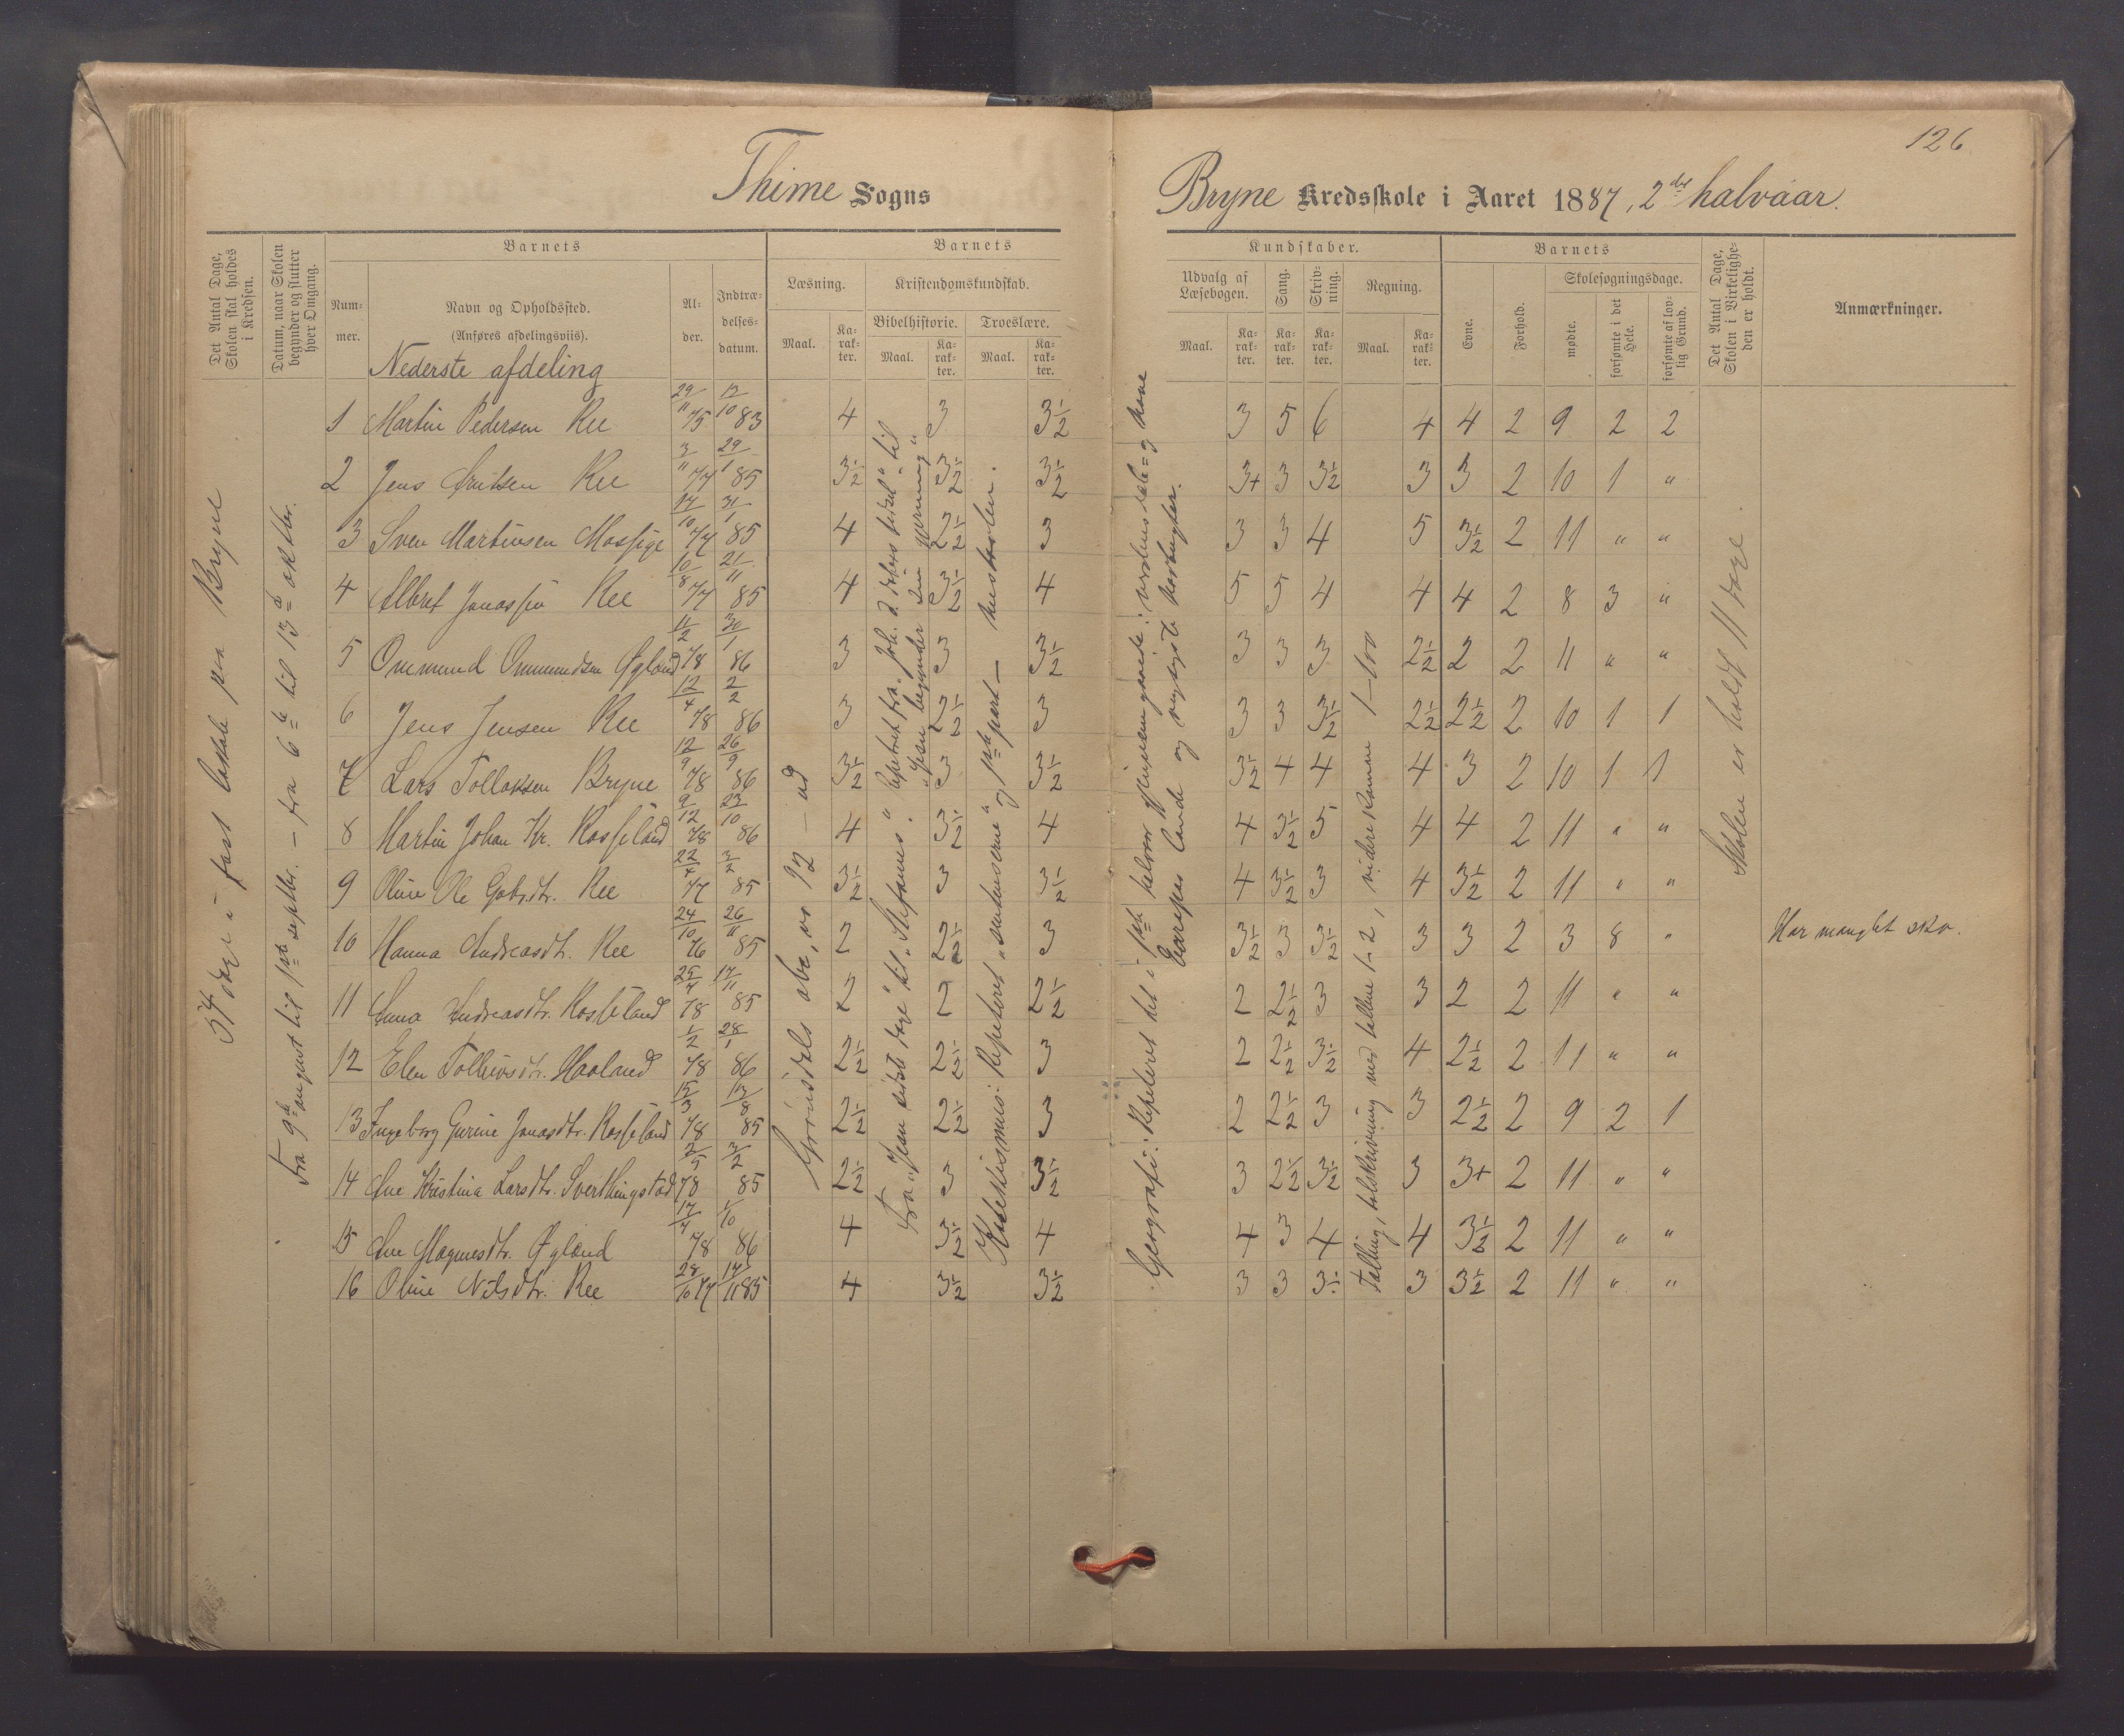 126
Thime Sogns
Bryne Kredsskole i Aaret 1887, 2det halvaar.
Det Antal Dage, Skolen skal holdes i Kredsen.
Datum, naar Skolen begynder og slutter hver Omgang.
Barnets
Nummer.
Navn og Opholdssted.
(Anføres afdelingsviis).
Alder.
Indtrædelsesdatum.
Barnets
Læsning.
Kristendomskundskab.
Bibelhistorie.
Troeslære.
Maal.
Karakter.
Maal.
Karakter.
Maal.
Karakter.
Kundskaber.
Udvalg af Læsebogen.
Sang.
Skrivning.
Regning.
Maal.
Karakter.
Karakter.
Karakter.
Maal.
Karakter.
Barnets
Evne.
Forhold.
Skolesøgningsdage.
mødte.
forsømte i det Hele.
forsømte af lovlig Grund.
Det Antal Dage, Skolen i Virkeligheden er holdt.
Anmærkninger.
Nederste afdeling
1 Martin Pedersen Ree 29/11 75 12/10 83 4 3 3½ 3 5 6 4 4 2 9 2 2
2 Jens Ree 3/11 77 29/1 85 3½ 3½ 3½ 3+ 3 3½ 3 3 2 10 1 "
3 Sven Martinsen Mossige 14/10 77 31/1 85 4 2½ 3 3 3 4 5 3½ 2 11 " "
4 Albret Jonassen Ree 10/8 77 21/11 85 4 3½ 4 5 5 4 4 4 2 8 3 "
5 Ommund Ommundsen Øgland 11/2 78 86 3 3 3½ 3 3 3 2½ 2 2 11 " "
6 Jens Jensen Ree 12/4 78 2/2 86 3 2½ 3 3 3 3½ 2½ 2½ 2 10 1 1
7 Lars Tollaksen Bryne 12/9 78 26/9 86 3½ 3 3½ 3½ 4 4 4 3 2 10 1 1
8 Martin Johan Kr. Rosseland 9/12 78 23/10 86 4 3½ 4 4 3½ 5 4 4 2 11 " "
9 Oline Ole Gabr.dtr. Ree 77 3/2 85 3½ 3 3½ 4 3½ 3 4 3½ 2 11 " "
10 Hanna Andreasdtr. Ree 24/10 76 26/11 85 2 2½ 3 3½ 3 3½ 3 3 2 3 8 " Har manglet sko.
11 Anna Andreasdtr. Rosseland 25/4 78 17/11 85 2 2 2½ 2 2½ 3 3 2 2 11 " "
12 Elen Tollivsdtr. Haaland 1/2 78 28/1 86 2½ 2½ 3 2 2½ 3½ 4 2½ 2 11 " "
13 Ingeborg Gurine Jonasdtr. Rosseland 15/3 78 12/8 85 2½ 2½ 3 2 2½ 3 3 2½ 2 9 2 1
14 Ane Kristina Larsdtr. Sverthingstad 2/5 78 3/2 85 2½ 3 3½ 3 2½ 3½ 3 3+ 2 11 " "
15 Ane Magnesdtr. Øgland 17/4 78 1/10 86 4 3½ 4 4 3 4 4 3½ 2 11 " "
16 Oline Nilsdtr. Ree 28/10 77 17/11 85 4 3½ 3½ 3 3 3½ 3 3½ 2 11 " "
54 dage i fast lokale paa Bryne
Fra 9de august til 1ste septbr. — fra 6te til 13de oktbr.
abc, no 12 – ud
Fra "Jesu sidste dage" til "Stefanus". Repeteret fra Joh. d. døbers fødsel" til "Jesu begynder sin gjerning"
Katekismus: Repeteret "sentenserne" og 1ste part —
Geografi: Repeteret det i 1ste halvaar gjennemgaaede: verdensdele og have
Europas lande og vigtigste
Talling, talskrivning med tallene 1–2, videre 1–100
Skolen er holdt 11 dage.